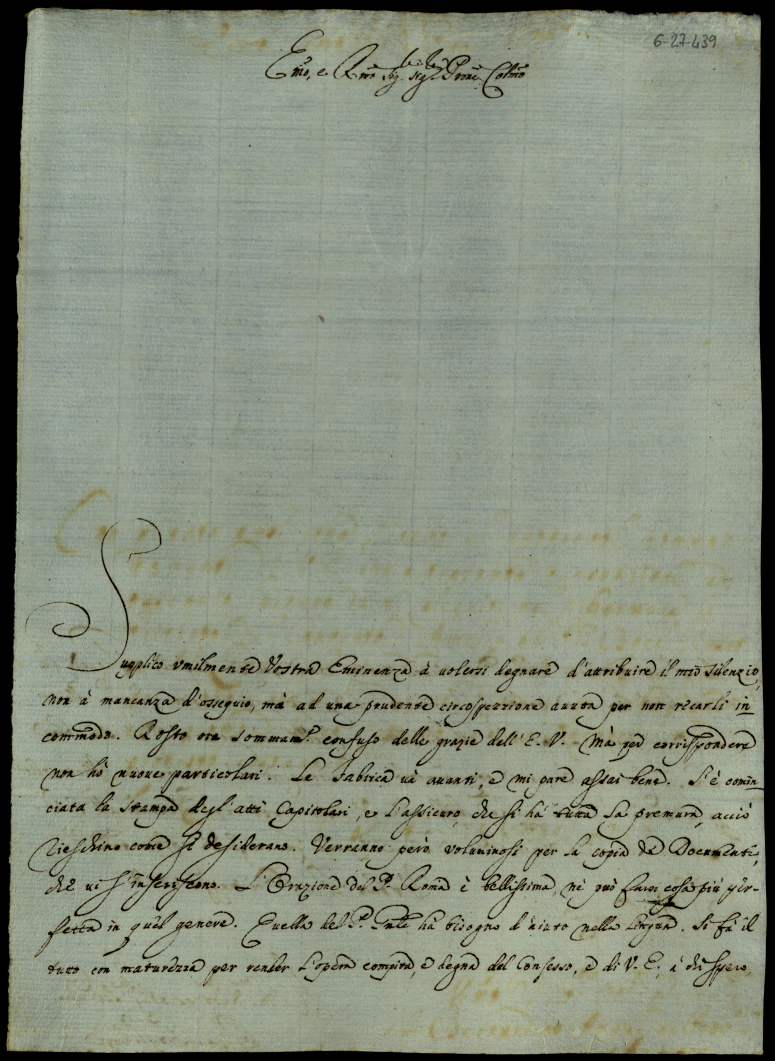 6-27-439
Emo, e Rmo Sig. Sig. Prone Colmo
Supplico umilmente Vostra Eminenza à volersi degnare d'attribuire il mio silenzio,
non à mancanza d'ossequio, mà ad una prudente circospezzione avuta per non recarli in=
commodo. Resto ora sommamte confuso delle grazie dell'E. V. Mà per corrispondere
non hò nuove particolari. Le Fabrica và avanti, e mi pare assai bene. S'è comin=
ciata la stampa degl'atti Capitolari, e l'assicuro, che si hà tutta la premura, acciò
rieschino come si desiderano. Verranno però voluminosi per la copia de Documenti,
che vi s'inseriscono. L'Orazione del P. Roma è bellissima, nè può farsi cosa più per=
fetta in quel genere. Quella del P. hà bisogno d'aiuto nella lingua. Si fà il
tutto con maturezza per render l'opera compita, e degna del Consesso, e di V. E., à chi spero,